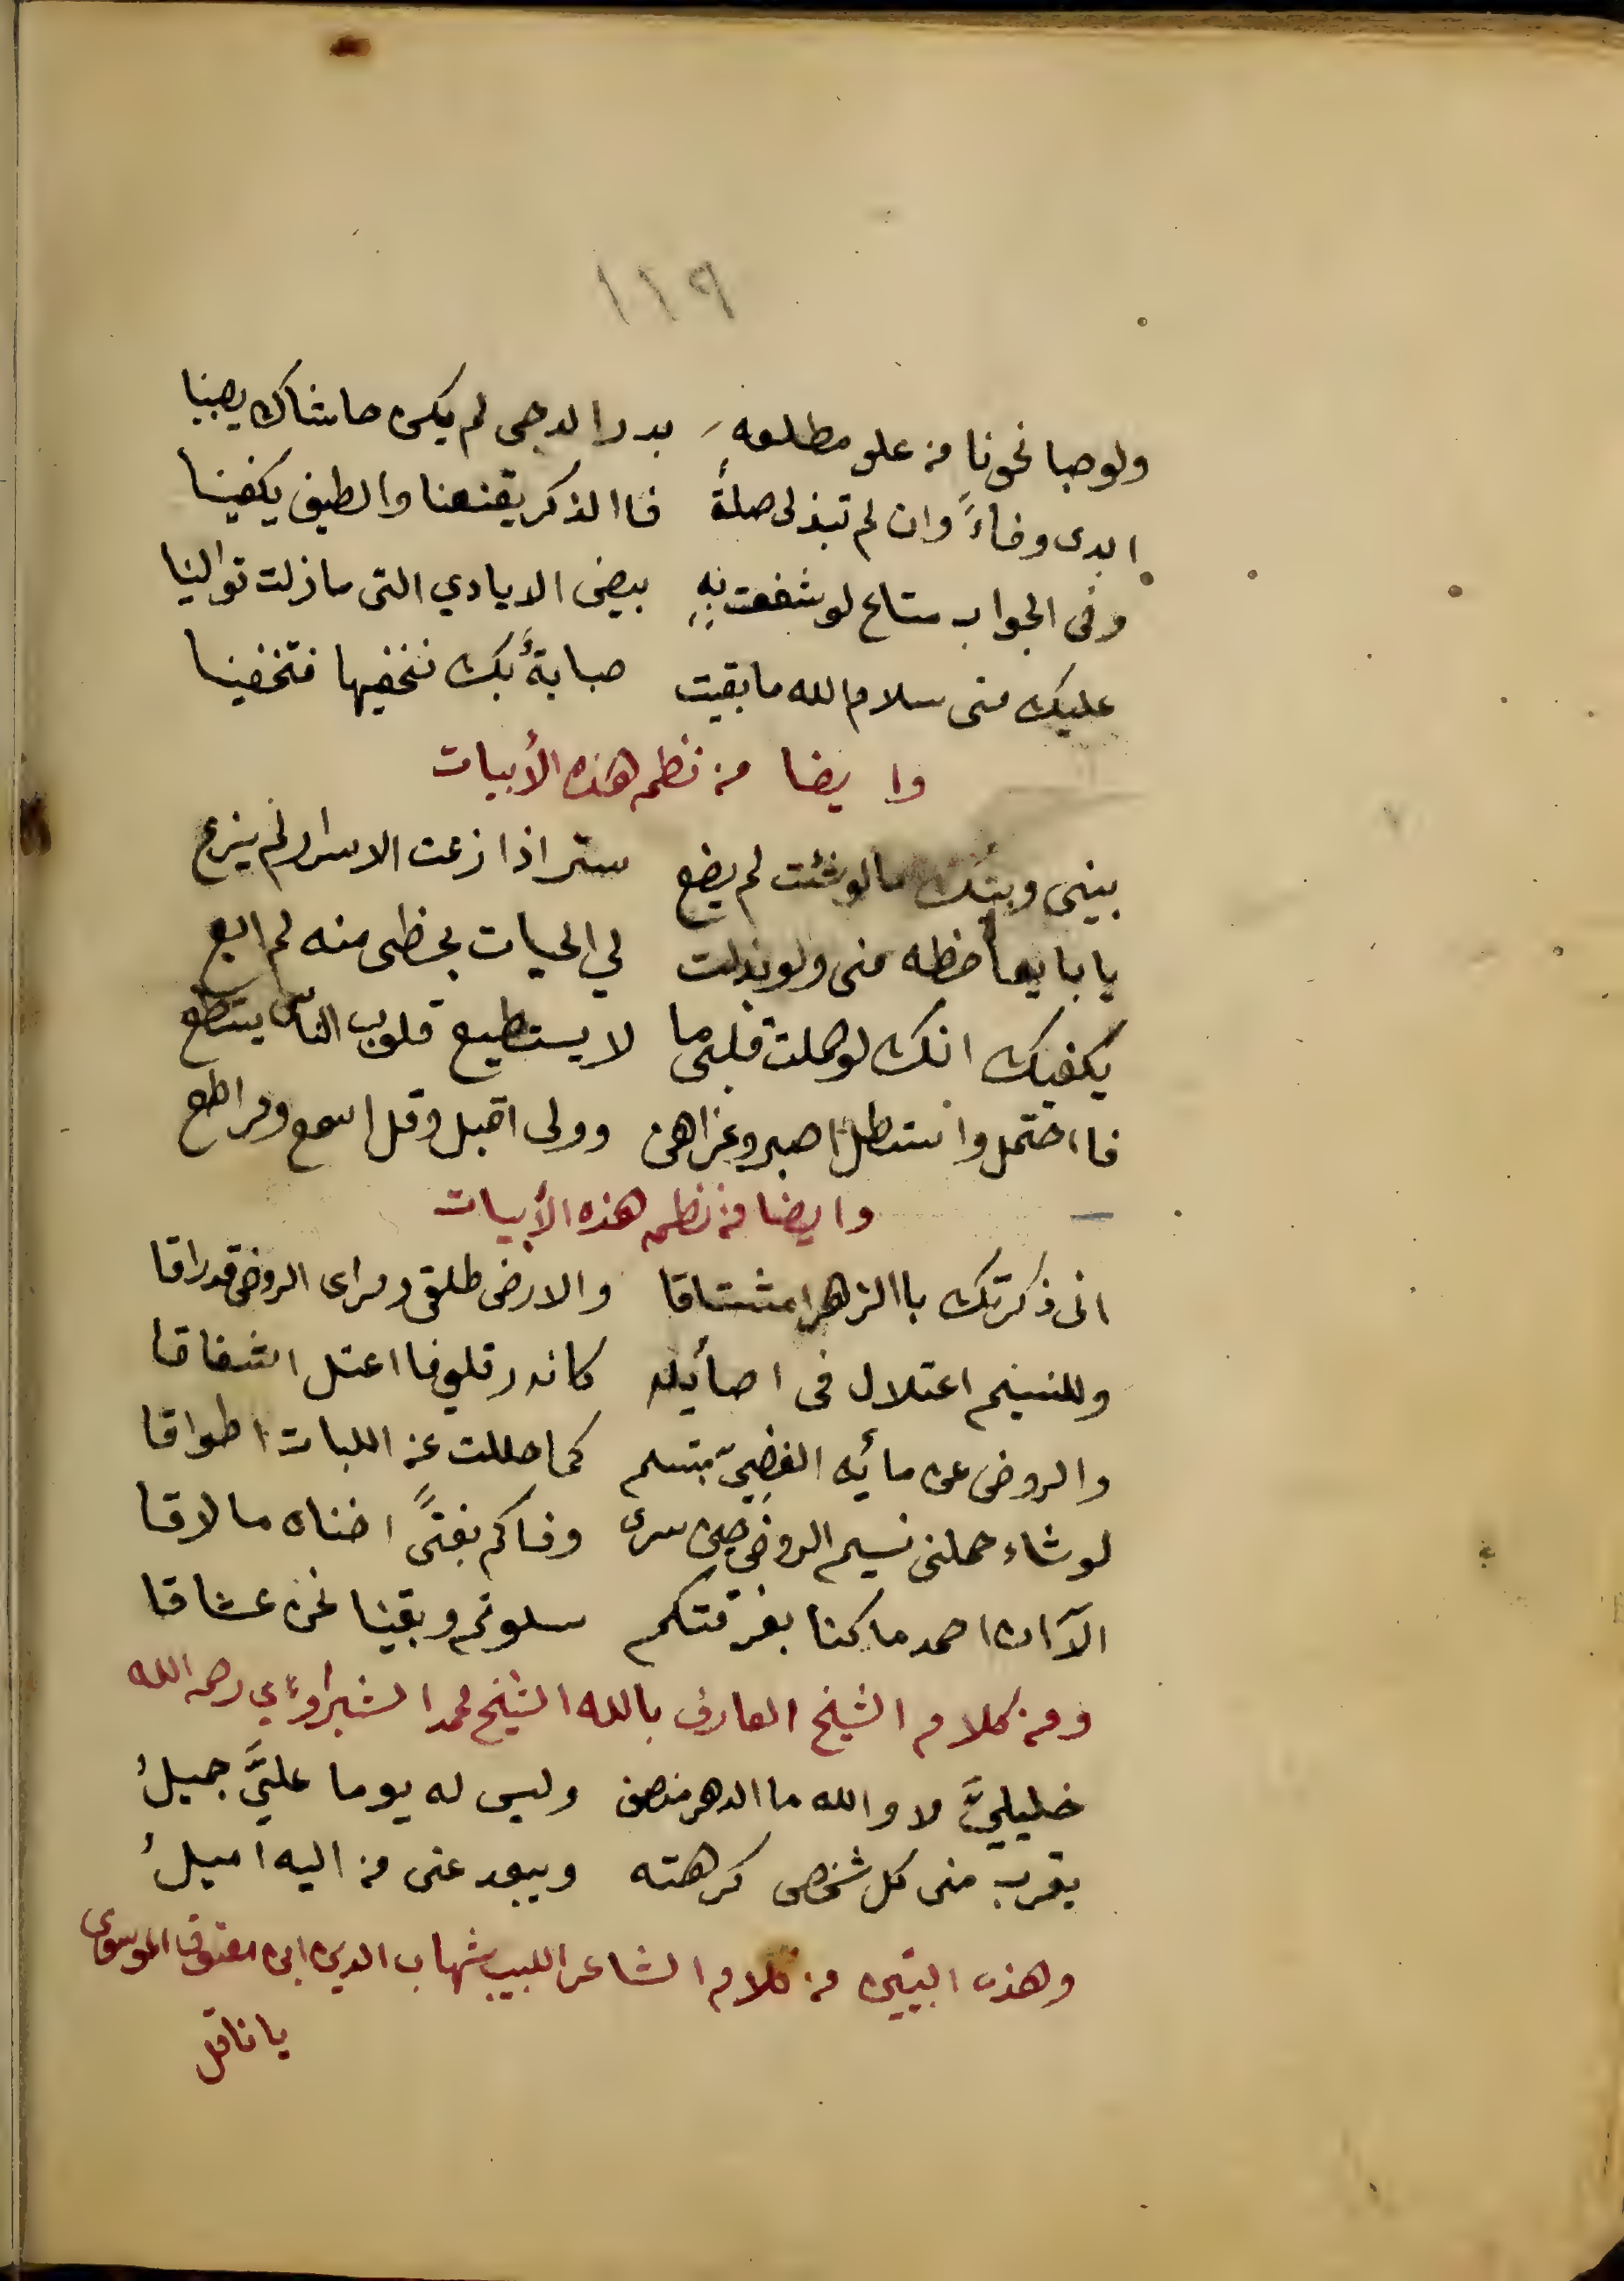 ١١٩
ولو صبا نحونا من علو مطلعه بدر الدجى لم يكن حاشاك يصبينا
ابدى وفاءً وان لم تبذلى صلةً فاالذكر يقنعنا والطيف يكفينا
وفى الجواب متاع لو شفعت بهِ بيض الايادي التى ما زلت توالينا
عليك منى سلام الله ما بقيت صبابةً بك نخفيها فتخفينا
وايضا من نظمه هذه الأبيات
بينى وبينك مالو شئت لم يضع ستر اذا زعت الاسرار لم يزع
يا بايعا حظه منى ولو بذلت لي الحيات بحظى منه لم ابع
يكفيك انك لو حملت قلبى ما لا يستطيع قلوب الناس يستطع
فااحتمل واستطل اصبر وعز اهن وولى اقبل وقل اسمع ومر اطع
وايضا من نظمه هذه الأبيات
انى ذكرتك باالزهرا مشتاقا والارض طلق ومراى الروض قد راقا
وللنسيم اعتلال فى اصأيله كانه رق لي فااعتل اشفاقا
والروض عن مأيه الفضيّ مبتسم كما حللت عن اللبات اطواقا
لو شاء حملنى نسيم الروض حين سرى وفاكم بفتىً اضناه ما لاقا
الآن احمد ما كنا بفرقتكم سلوتم وبقينا نحن عشاقا
ومن كلام الشيخ العارف بالله الشيخ محمد الشبراوي رحمه الله
خليليَّ لا والله ما الدهر منصف وليس له يوما عليَّ جميلُ
يقرب منى كل شخص كرهته ويبعد عنى من اليه اميلُ
وهذه البيتين من كلام الشاعر اللبيب شهاب الدين ابن معتوق الموسوى
يا ناقل